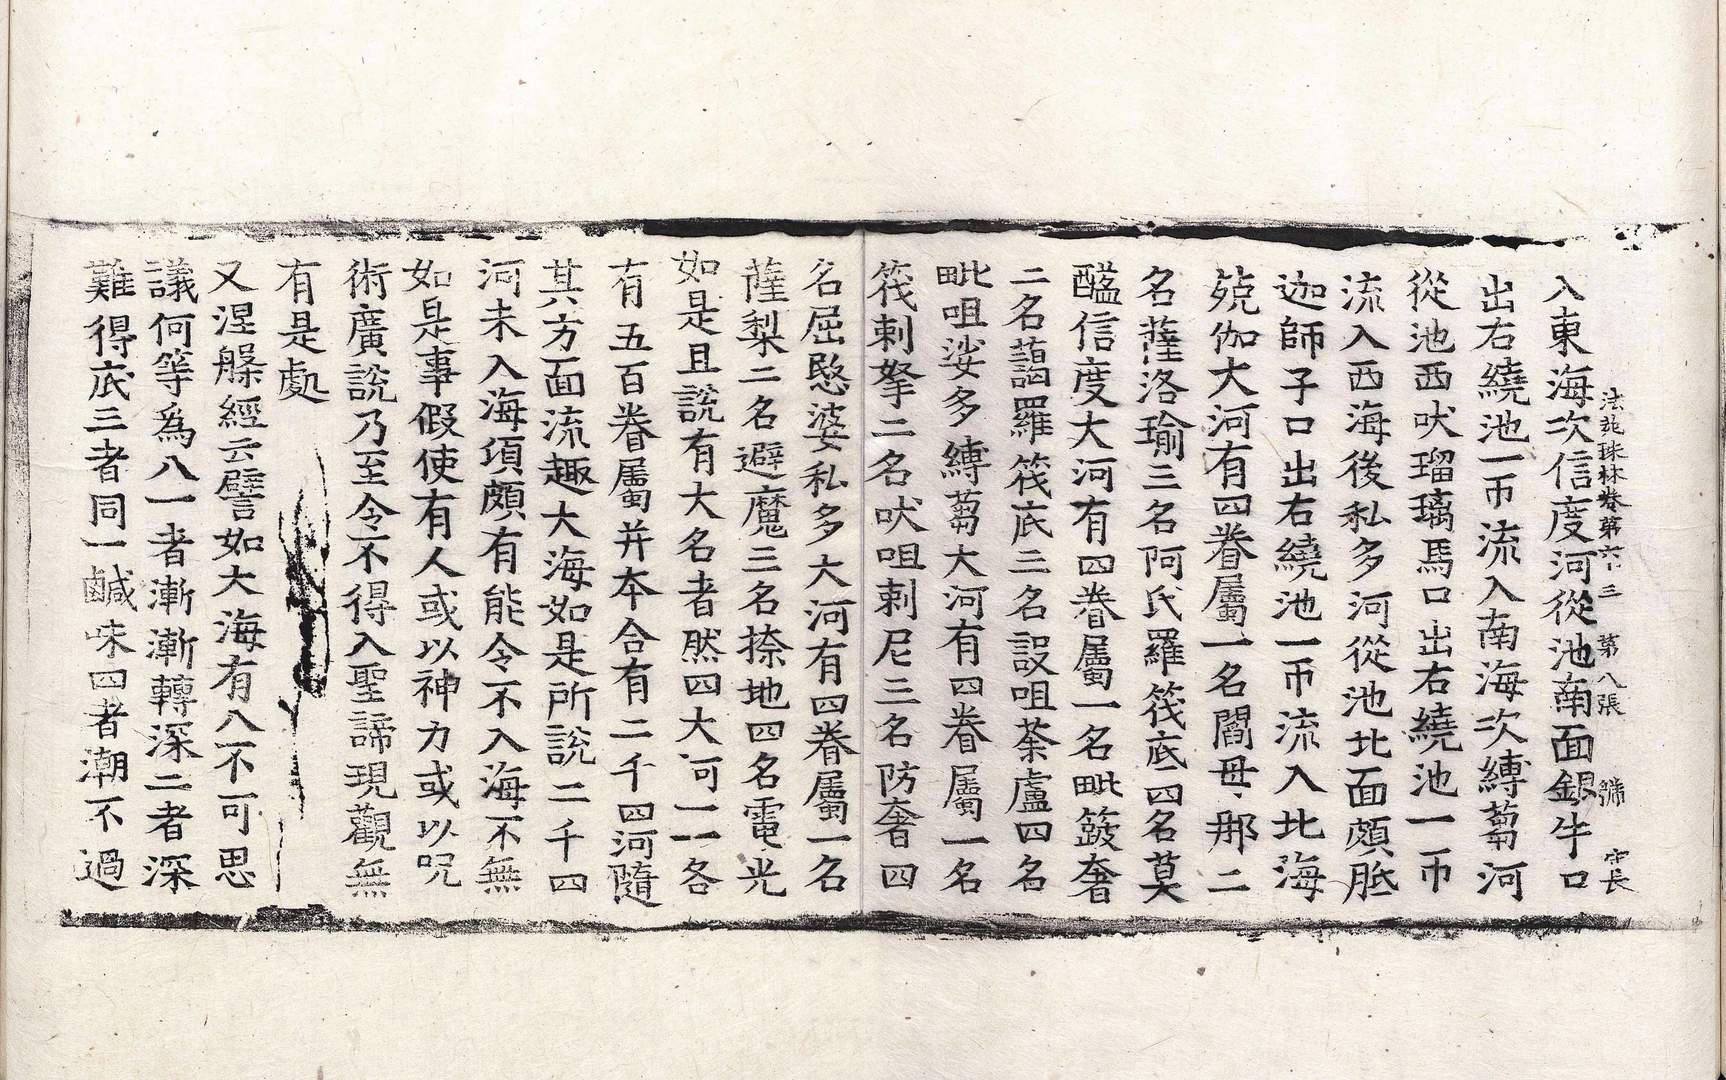 法苑珠林卷第六十三 第八張 號 守長
入東海次信度河從池南面銀牛口
出右繞池一帀流入南海次縛蒭河
從池西吠瑠璃馬口出右繞池一帀
流入西海後私多河從池北面頗胝
迦師子口出右繞池一帀流入北海
殑伽大河有四眷屬一名閻母那二
名薩洛瑜三名阿氏羅筏底四名莫
醯信度大河有四眷屬一名毗簸奢
二名藹羅筏底三名設呾荼盧四名
毗呾娑多縛蒭大河有四眷屬一名
筏剌拏二名吠呾剌尼三名防奢四
名屈愍婆私多大河有四眷屬一名
薩梨二名避魔三名捺地四名電光
如是且說有大名者然四大河一一各
有五百眷屬并本合有二千四河隨
其方面流趣大海如是所說二千四
河未入海頃頗有能令不入海不無
如是事假使有人或以神力或以呪
術廣說乃至令不得入聖諦現觀無
有是處
又涅槃經云譬如大海有八不可思
議何等為八一者漸漸轉深二者深
難得底三者同一鹹味四者潮不過